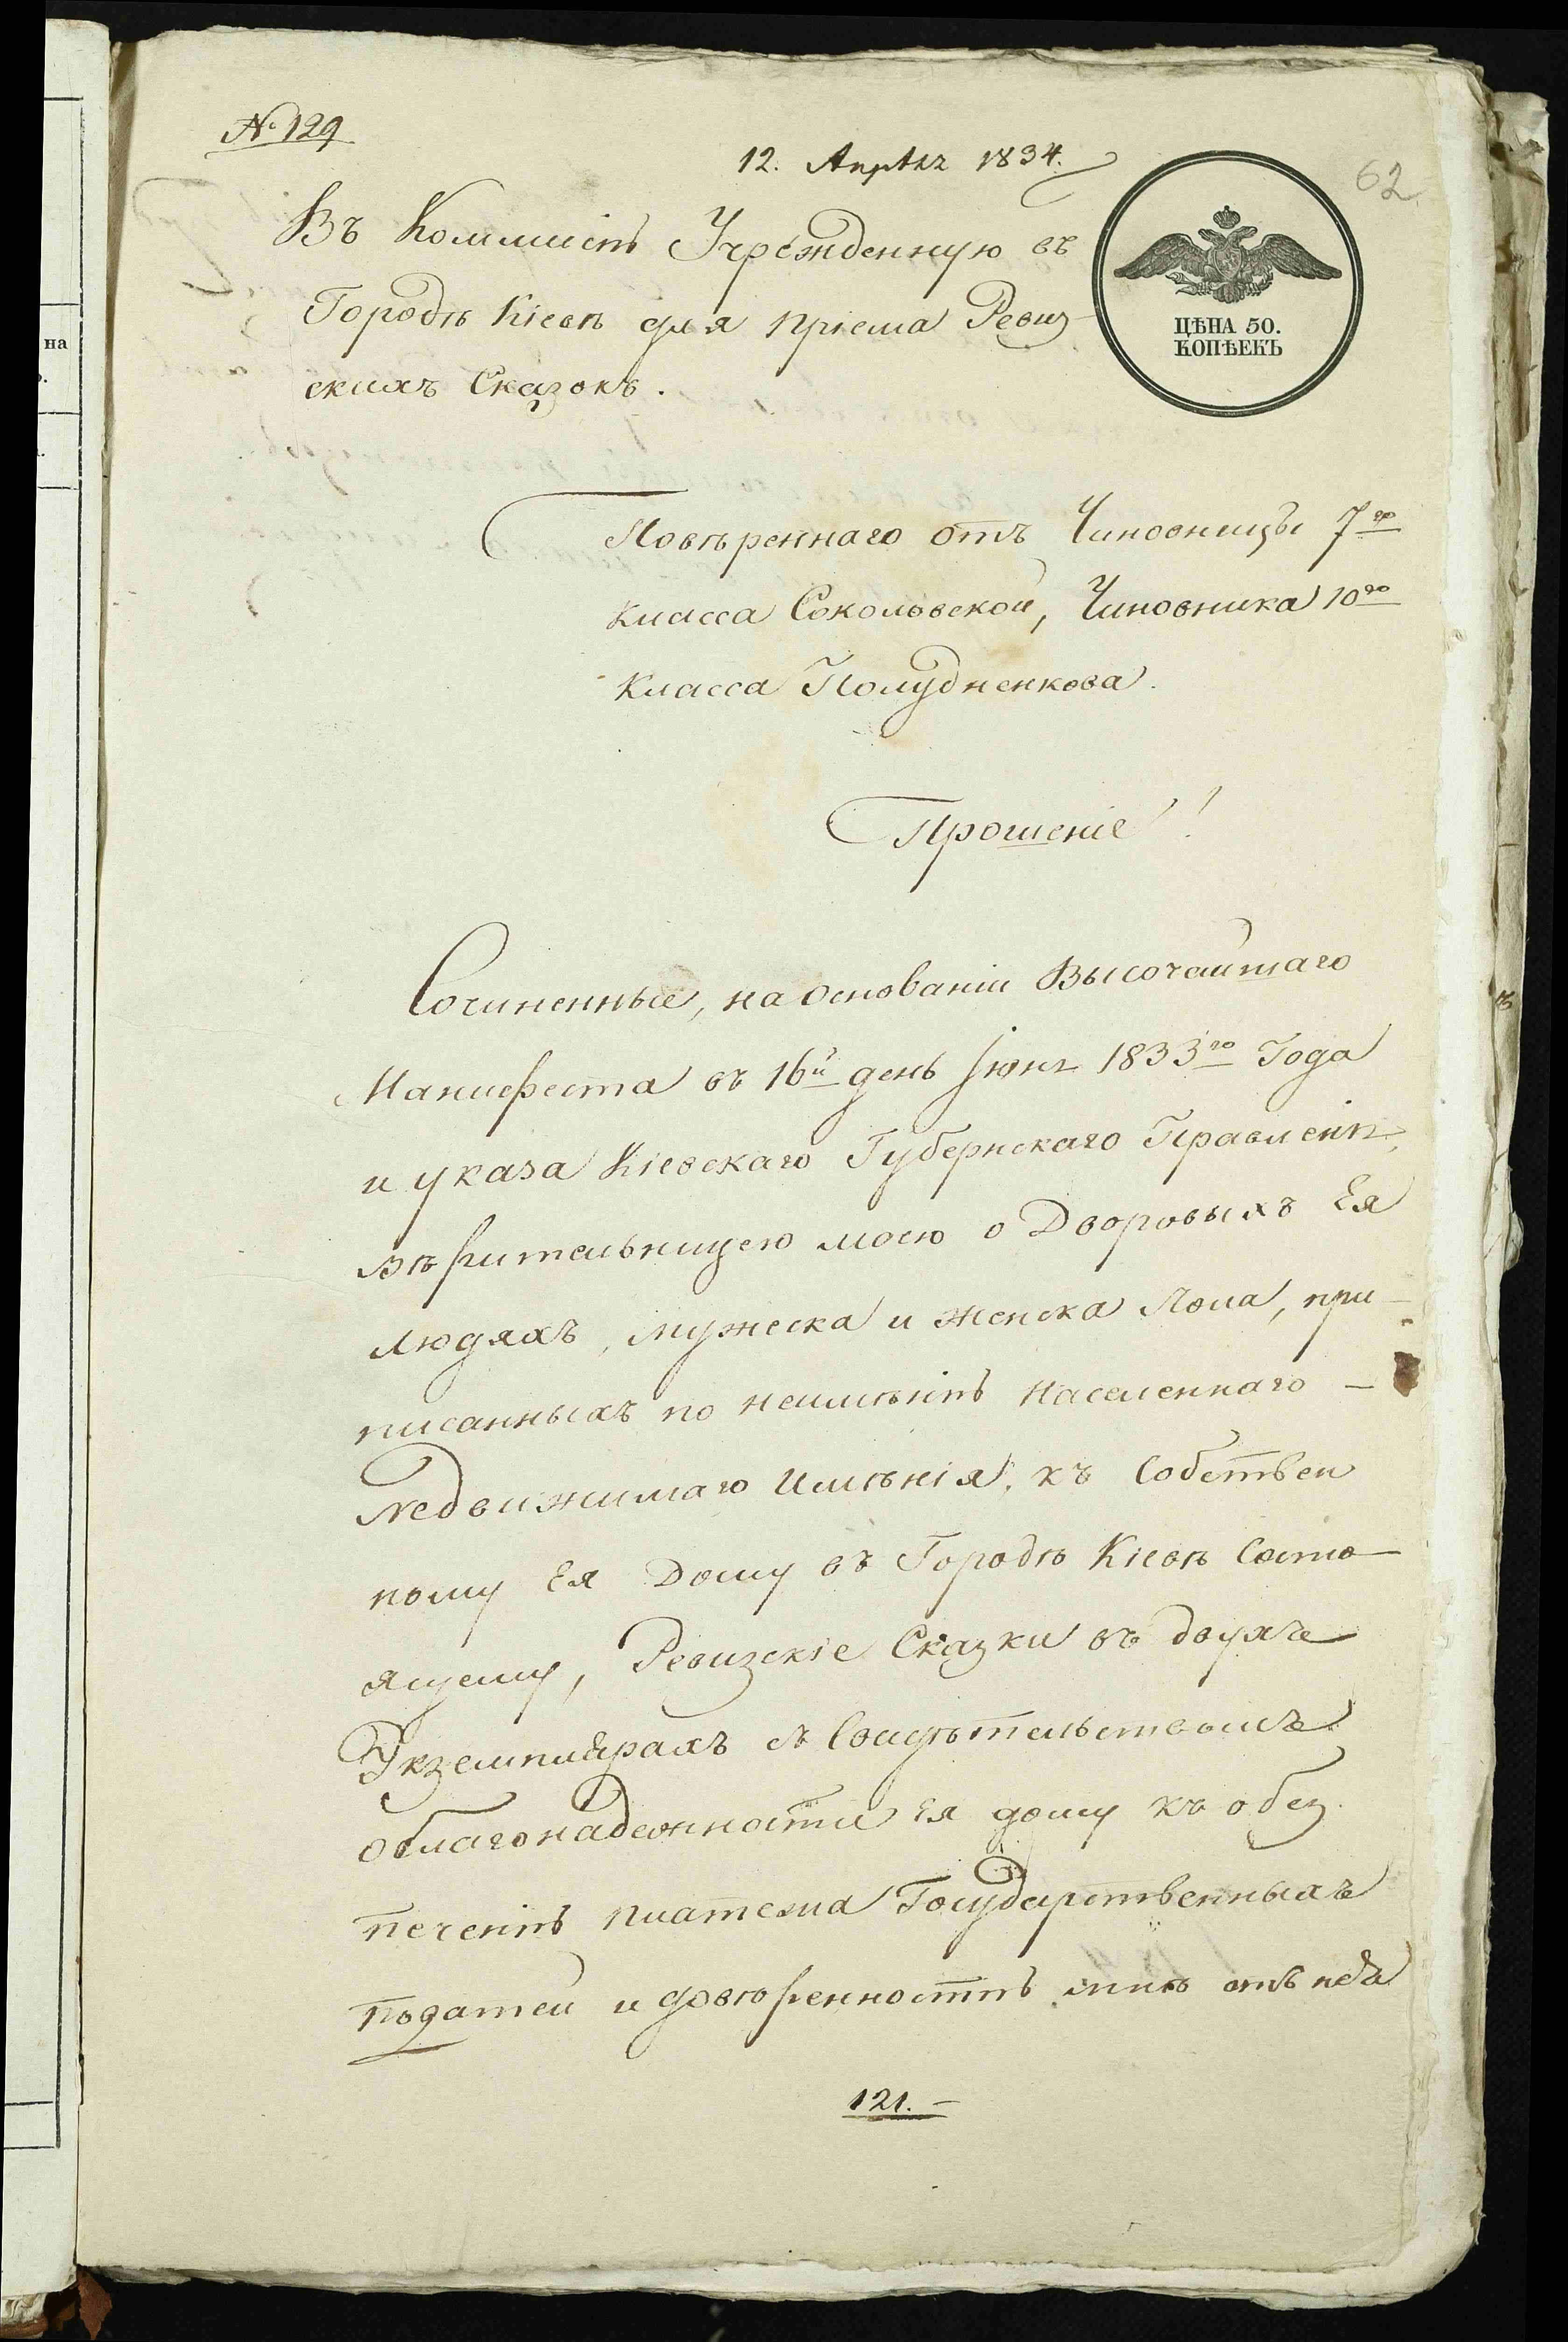 № 129
12. Апрѣля 1834.
62
Въ Коммисію Учрежденную въ
Городѣ Кіевѣ для пріема Ревиз-
скихъ Сказокъ.
ЦѢНА 50.
КОПѢЕКЪ
Повѣреннаго отъ Чиновницы 7го
класса Соколовской, Чиновника 10го
класса Полудненкова.
Прошеніе!
Сочиненные, на основаніи Высочайшаго
Манифеста въ 16й день Іюня 1833го Года
и указа Кіевскаго Губернскаго Правленія,
вѣрительницею моею о Дворовыхъ Ея
людяхъ, мужеска и женска пола, при-
писанныхъ по неимѣнію населеннаго –
Недвижимаго Имѣнія, къ Собствен
ному Ея Дому въ Городѣ Кіевѣ Состо-
ящему, Ревизскіе Сказки въ двухъ
Экземплярахъ съ Свидѣтельствомъ
облагонадежности Ея дому къ обез
печенію платежа Государственныхъ
податей и довѣренностію мнѣ отъ нея
121. –
на